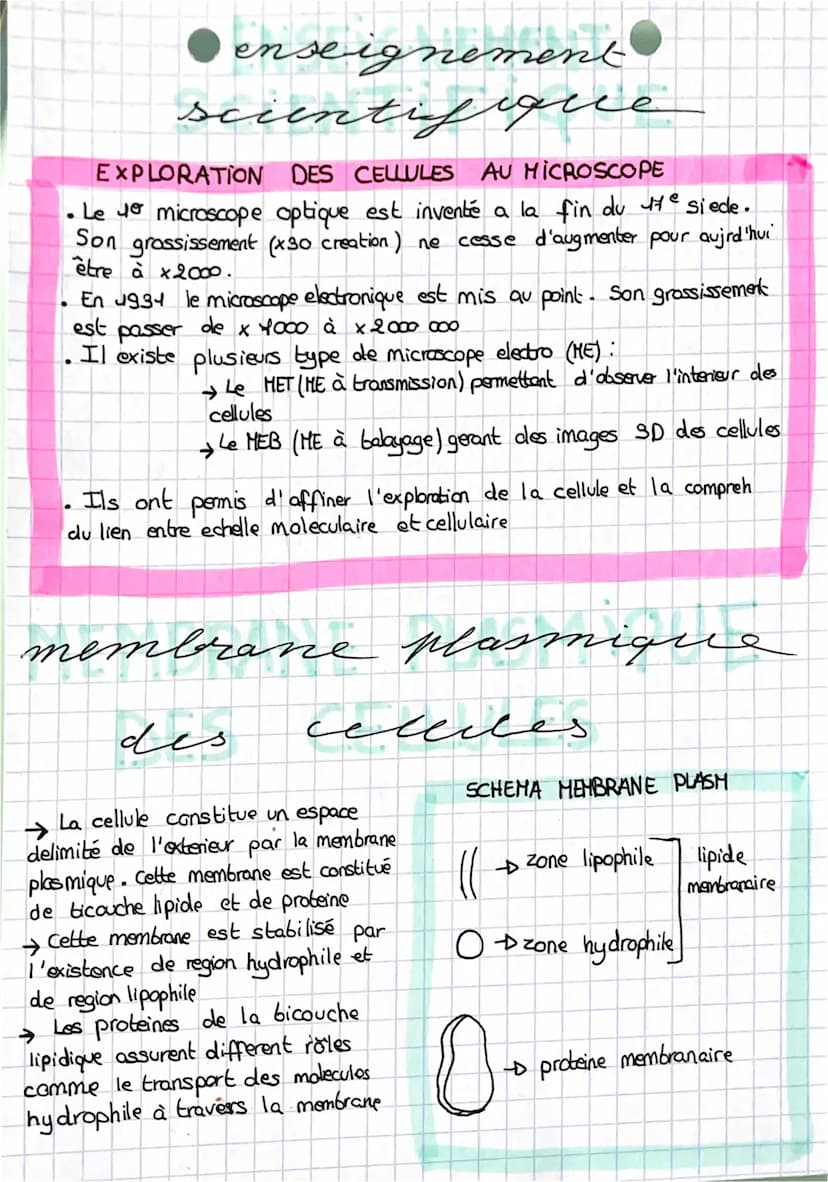 enseignement
scientifique
EXPLORATION DES CELLULES AU MICROSCOPE
• Le 1er microscope optique est inventé a la fin du 17e siecle.
Son grossissement (x30 creation) ne cesse d'augmenter pour aujrd'hui
être à x2000.
• En 1931 le microscope electronique est mis au point. Son grossissement
est passer de x 4000 à x 2000 000
• Il existe plusieurs type de microscope electro (ME) :
→ Le MET (ME à transmission) permettant d'observer l'interieur des
cellules
→ Le MEB (ME à balayage) gerant des images 3D des cellules
• Ils ont permis d'affiner l'exploration de la cellule et la compreh
du lien entre echelle moleculaire et cellulaire
membrane plasmique
des cellules
→ La cellule constitue un espace
delimité de l'exterieur par la membrane
plasmique. Cette membrane est constitué
de bicouche lipide et de proteine
→ Cette membrane est stabilisé par
l'existence de region hydrophile et
de region lipophile
→ Les proteines de la bicouche
lipidique assurent different rôles
comme le transport des molecules
hydrophile à travers la membrane
SCHEMA MEMBRANE PLASM
→ zone lipophile
lipide
membranaire
→ zone hydrophile
→ proteine membranaire